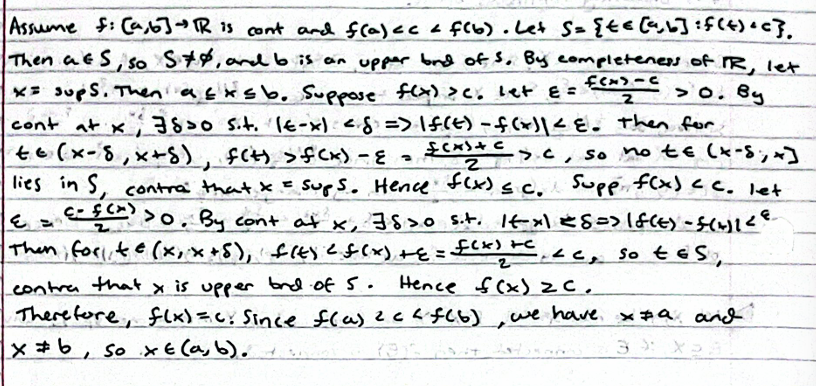 Assume f: [a,b]→ℝ is cont and f(a)<c<f(b). Let S={t∈[a,b]:f(t)<c}.
Then a∈S, so S≠∅, and b is an upper bnd of S. By completeness of ℝ, let
x = sup S. Then a≤x≤b. Suppose f(x)>c. Let ε = (f(x)-c)/2 > 0. By
cont at x, ∃δ>0 s.t. |t-x|<δ => |f(t)-f(x)|<ε. Then for
t∈(x-δ,x+δ), f(t)>f(x)-ε = (f(x)+c)/2 > c, so no t∈(x-δ,x]
lies in S, contra that x = sup S. Hence f(x)≤c. Supp f(x)<c. let
ε = (c-f(x))/2 > 0. By cont at x, ∃δ>0 s.t. |t-x|<δ=>|f(t)-f(x)|<ε
Then for t∈(x,x+δ), f(t)<f(x)+ε = (f(x)+c)/2 < c, so t∈S,
contra that x is upper bnd of S. Hence f(x)≥c.
Therefore, f(x)=c. Since f(a)<c<f(b), we have x≠a and
x≠b, so x∈(a,b).